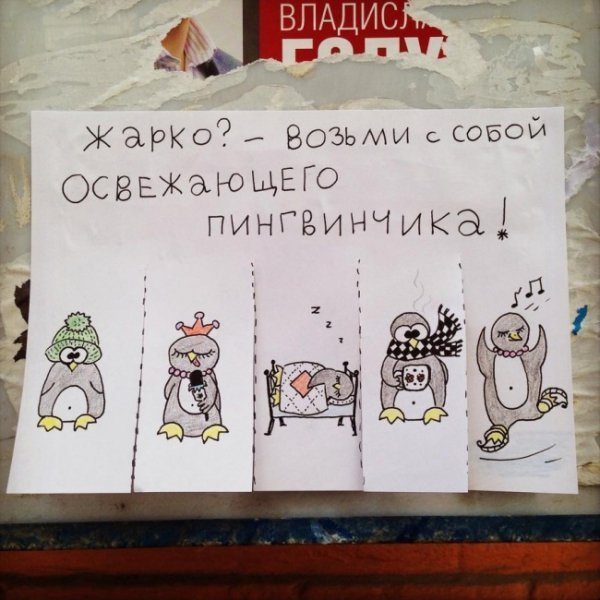 ВЛАДИСЛ
ЖАРКО? – ВОЗЬМИ С СОБОЙ
ОСВЕЖАЮЩЕГО
ПИНГВИНЧИКА!
z
z
z